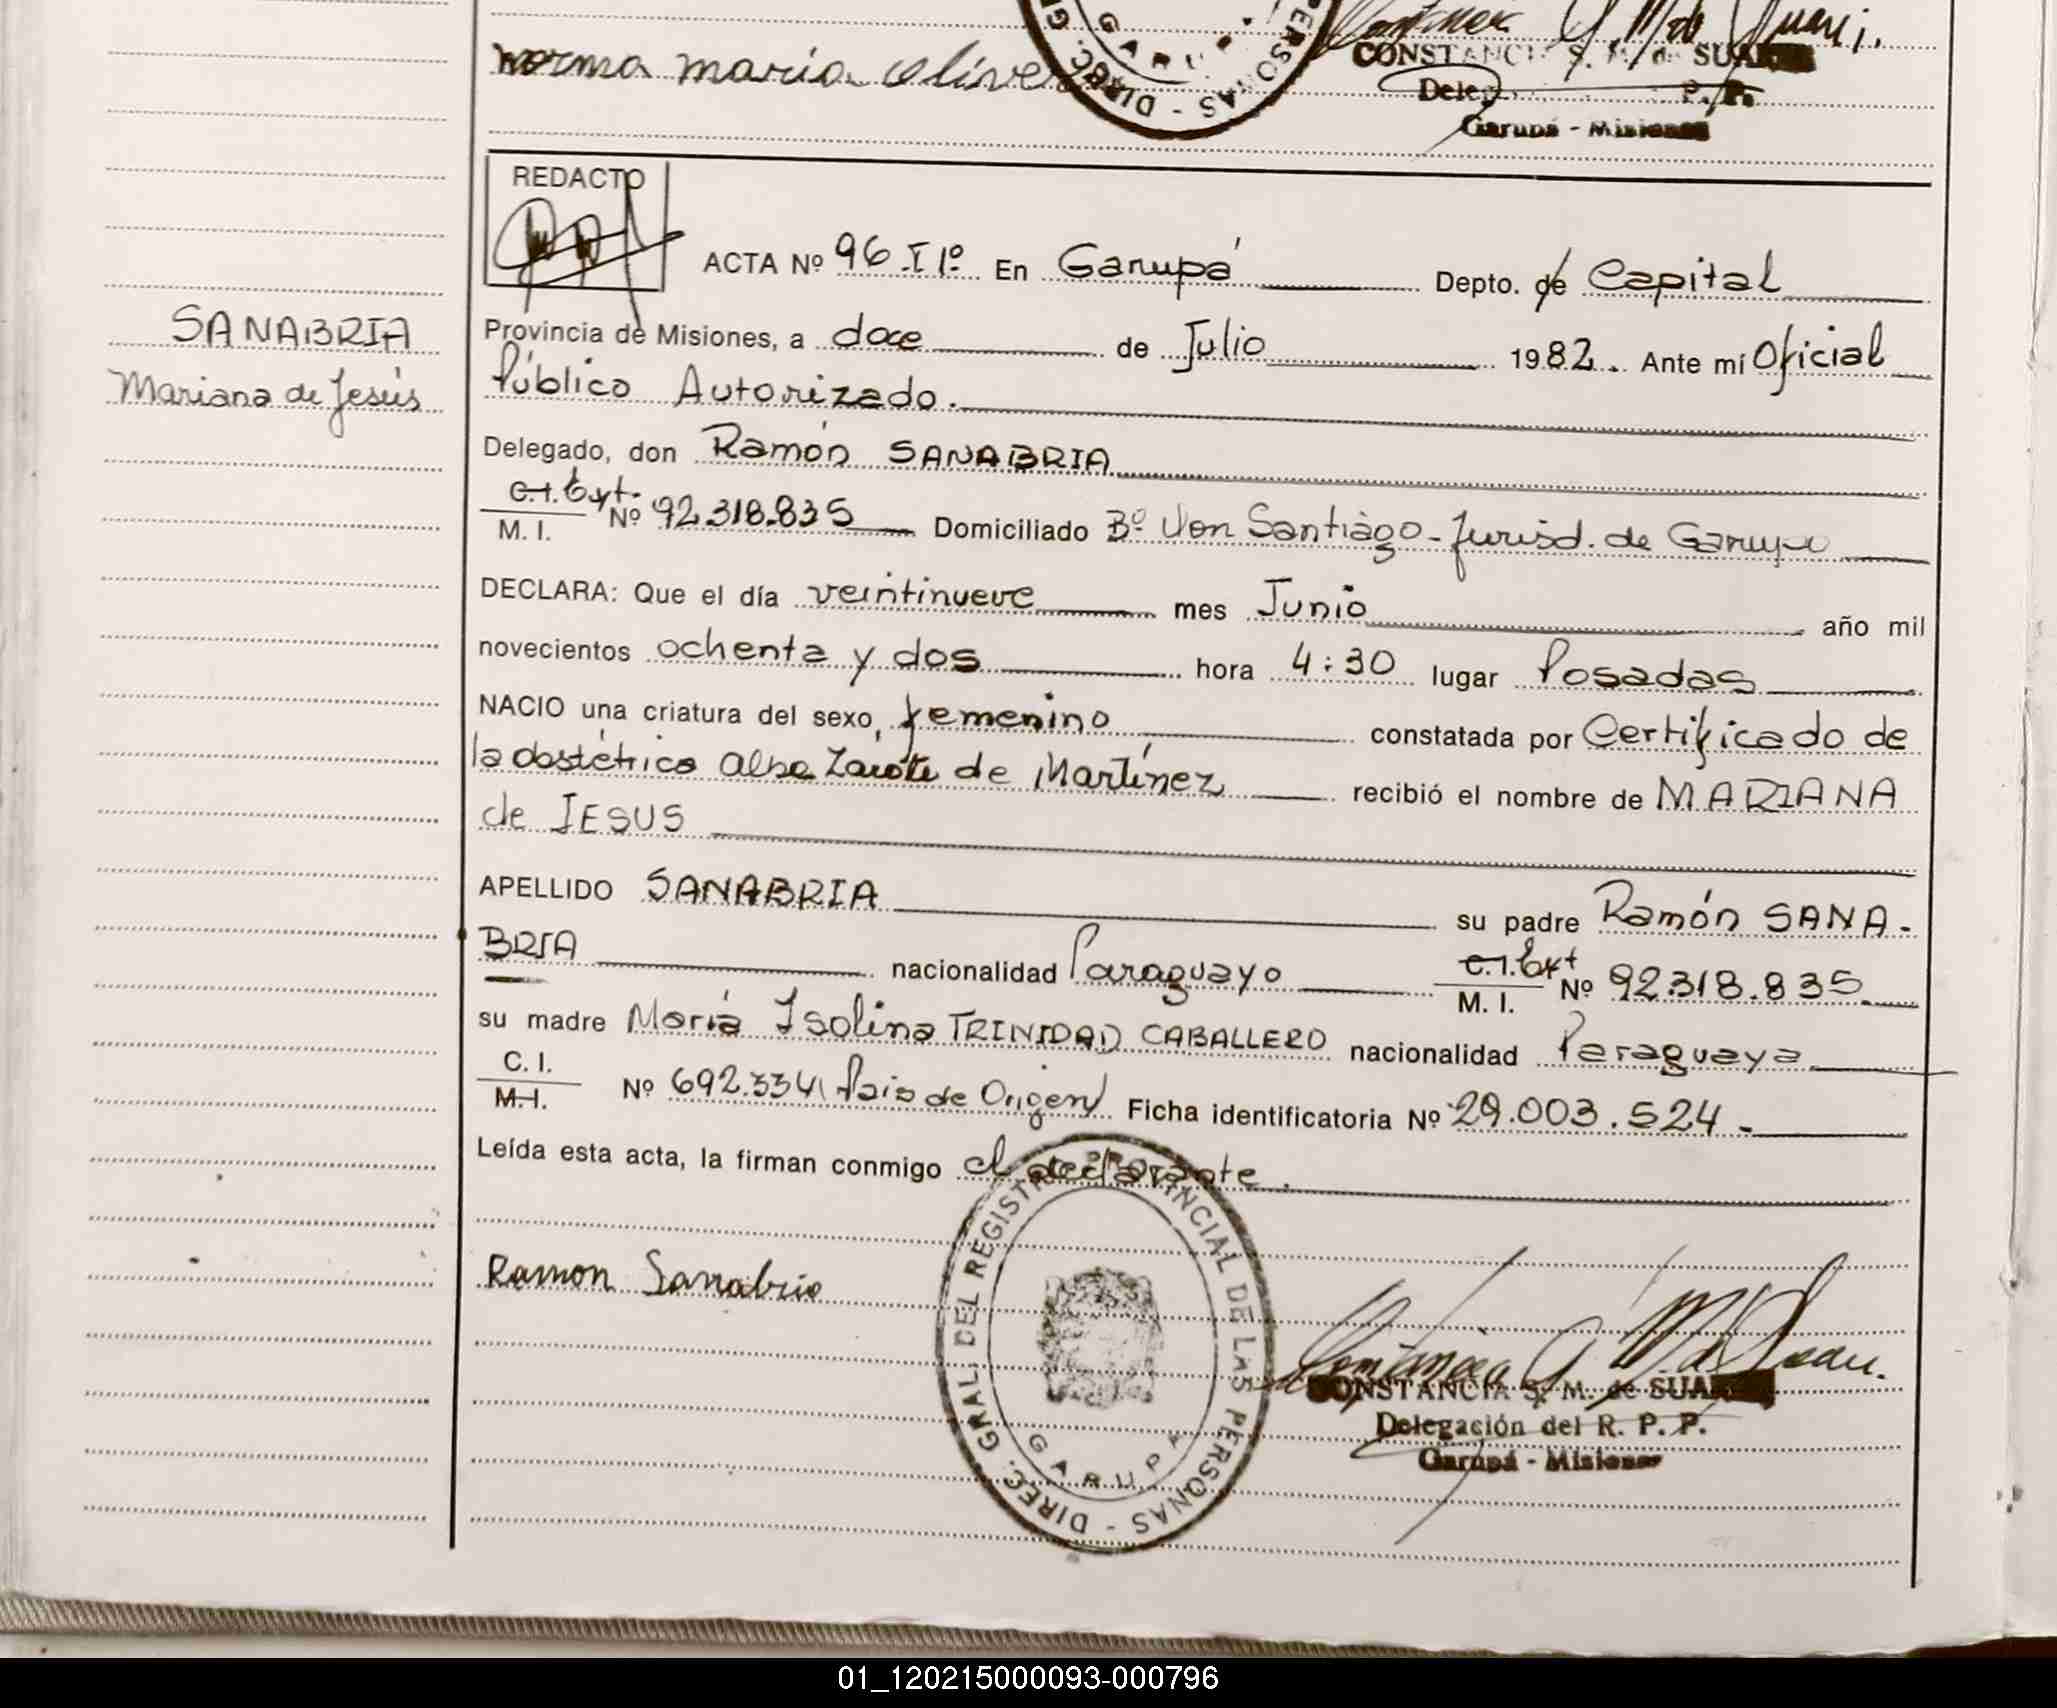 norma maría Olivera
CONSTANCIA S. M. de SUAREZ
Deleg P. P.
Garupá - Misiones
GARUPA
PERSONAS - DIREC. G
REDACTO
ACTA Nº 96.Iº. En Garupá Depto. de Capital
SANABRIA
Mariana de Jesús
Provincia de Misiones, a doce de Julio 1982. Ante mí Oficial
Público Autorizado.
Delegado, don Ramón SANABRIA
C.I. Ext.
M. I. Nº 92.318.835 Domiciliado Bº Don Santiago - Jurisd. de Garupá
DECLARA: Que el día veintinueve mes Junio año mil
novecientos ochenta y dos hora 4:30 lugar Posadas
NACIO una criatura del sexo, femenino constatada por Certificado de
la obstétrica Alba Zarate de Martínez recibió el nombre de MARIANA
de JESUS
APELLIDO SANABRIA su padre Ramón SANA-
BRIA nacionalidad Paraguayo C.I. Ext M. I. Nº 92.318.835
su madre María Isolina TRINIDAD CABALLERO nacionalidad Paraguaya
C. I.
M.I. Nº 692.334 (País de Origen) Ficha identificatoria Nº 29.003.524-
Leída esta acta, la firman conmigo el declarante.
Ramon Sanabria
DIREC. GRAL. DEL REGISTRO PROVINCIAL DE LAS PERSONAS -
GARUPA
CONSTANCIA S. M. de SUAREZ
Delegación del R. P. P.
Garupá - Misiones
01_120215000093-000796